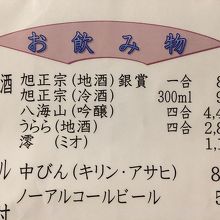 お飲み物
酒 旭正宗(地酒)銀賞 一合 8
旭正宗(冷酒) 300ml 9
八海山(吟醸) 四合 4,4
うらら(地酒) 四合 2,
澪 (ミオ) 1,1
ル 中びん(キリン・アサヒ) 8
ノーアルコールビール
付